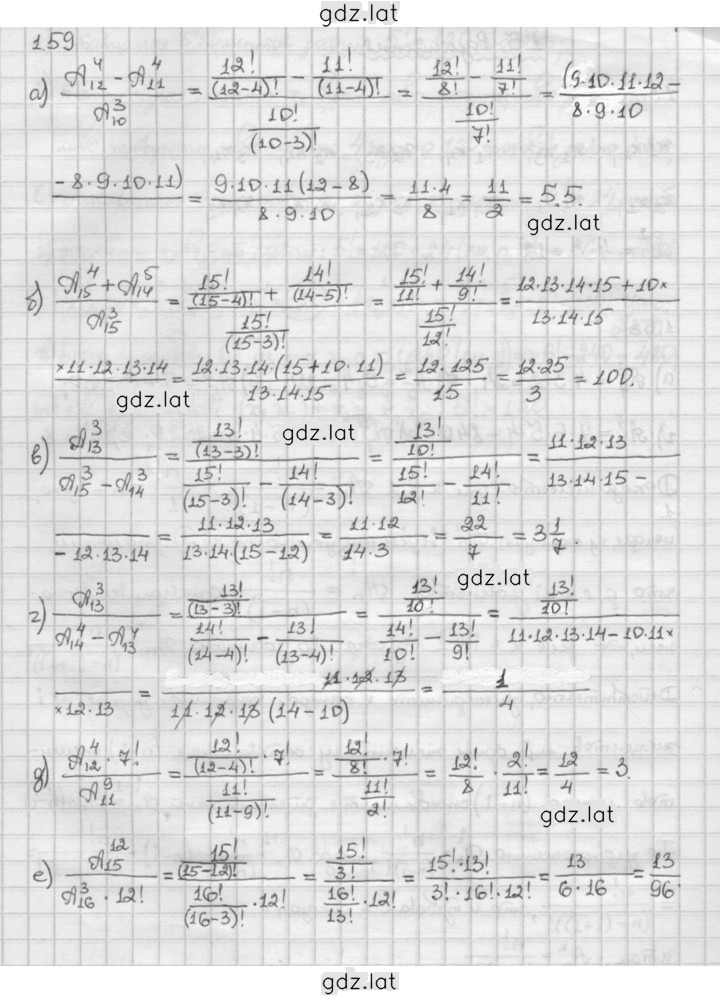 gdz.lat
1.59
а) (A₁₂⁴ − A₁₁⁴)/A₁₀³ = (12!/(12−4)! − 11!/(11−4)!)/(10!/(10−3)!) = (12!/8! − 11!/7!)/(10!/7!) = (9·10·11·12 −/8·9·10
−8·9·10·11)/ = 9·10·11(12−8)/(8·9·10) = 11·4/8 = 11/2 = 5.5.
gdz.lat
б) (A₁₅⁴ + A₁₄⁵)/A₁₅³ = (15!/(15−4)! + 14!/(14−5)!)/(15!/(15−3)!) = (15!/11! + 14!/9!)/(15!/12!) = (12·13·14·15 + 10×)/(13·14·15)
×11·12·13·14/ = 12·13·14·(15+10·11)/(13·14·15) = 12·125/15 = 12·25/3 = 100.
gdz.lat
gdz.lat
в) A₁₃³/(A₁₅³ − A₁₄³) = (13!/(13−3)!)/(15!/(15−3)! − 14!/(14−3)!) = (13!/10!)/(15!/12! − 14!/11!) = 11·12·13/(13·14·15 −
/−12·13·14 = 11·12·13/(13·14·(15−12)) = 11·12/(14·3) = 22/7 = 3 1/7.
gdz.lat
г) A₁₃³/(A₁₄⁴ − A₁₃⁴) = (13!/(13−3)!)/(14!/(14−4)! − 13!/(13−4)!) = (13!/10!)/(14!/10! − 13!/9!) = (13!/10!)/(11·12·13·14 − 10·11×
/×12·13 = 11·12·13/(11·12·13(14−10)) = 1/4
д) (A₁₂⁴·7!)/A₁₁⁹ = (12!/(12−4)!·7!)/(11!/(11−9)!) = (12!/8!·7!)/(11!/2!) = 12!/8 · 2!/11! = 12/4 = 3.
gdz.lat
е) A₁₅¹²/(A₁₆³·12!) = (15!/(15−12)!)/(16!/(16−3)!·12!) = (15!/3!)/(16!/13!·12!) = 15!·13!/(3!·16!·12!) = 13/(6·16) = 13/96.
gdz.lat